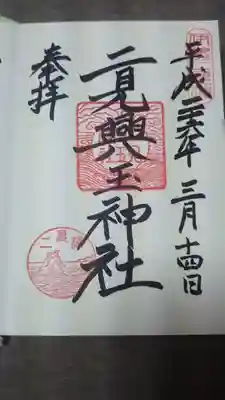 平成二十六年三月十四日
二見興玉神社
奉拝
二見浦